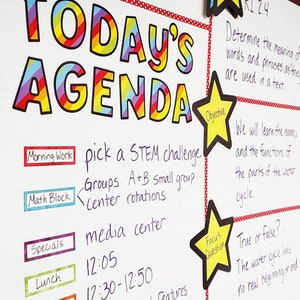 TODAY'S
AGENDA
Morning Work pick a STEM challenge
Math Block Groups A+B small group
center rotations
Specials media center
Lunch 12:05
12:30-12:50
features
RL 2.4
Determine the meaning of
words and phrases as they
are used in a text.
Objective
We will learn the names
and the functions of
the parts of the water
cycle.
Focus
Question
True or false?
The water cycle has
no real beginning or end.